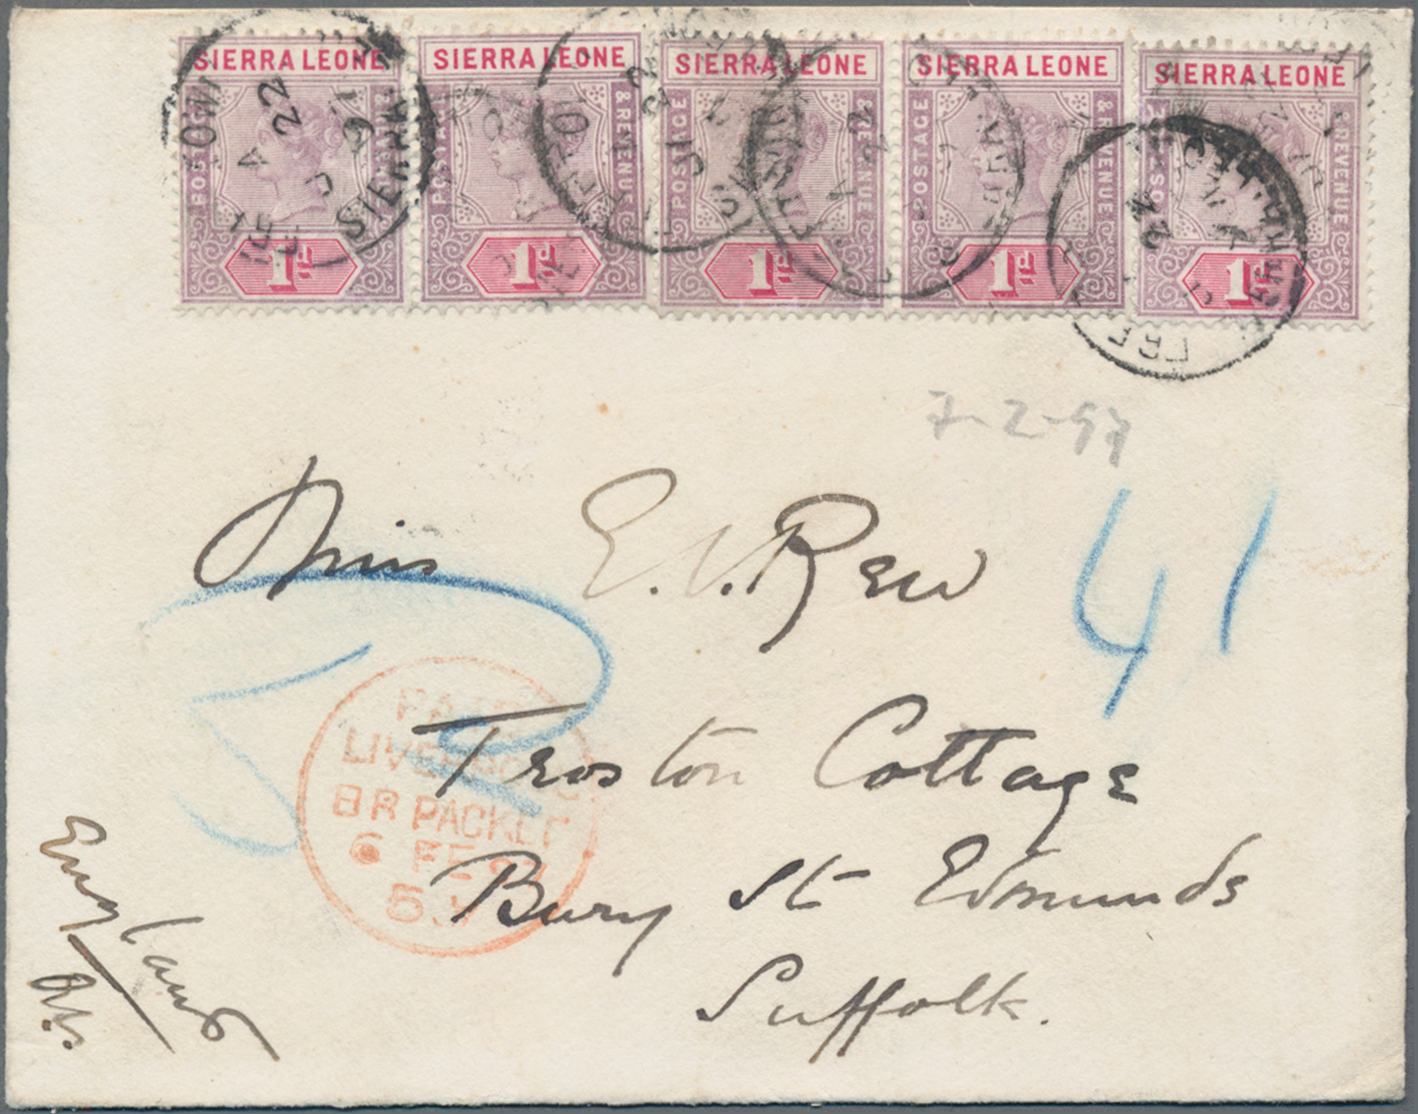 SIERRA LEONE SIERRA LEONE SIERRA LEONE SIERRA LEONE SIERRA LEONE
POSTAGE & REVENUE POSTAGE & REVENUE POSTAGE & REVENUE POSTAGE & REVENUE POSTAGE & REVENUE
1d 1d 1d 1d 1d
JA 22
SIERRA
7-2-97
Miss E. V. Rew
41
Troston Cottage
Bury St Edmunds
Suffolk.
England
PAID
LIVERPOOL
BR PACKET
6 FE 97